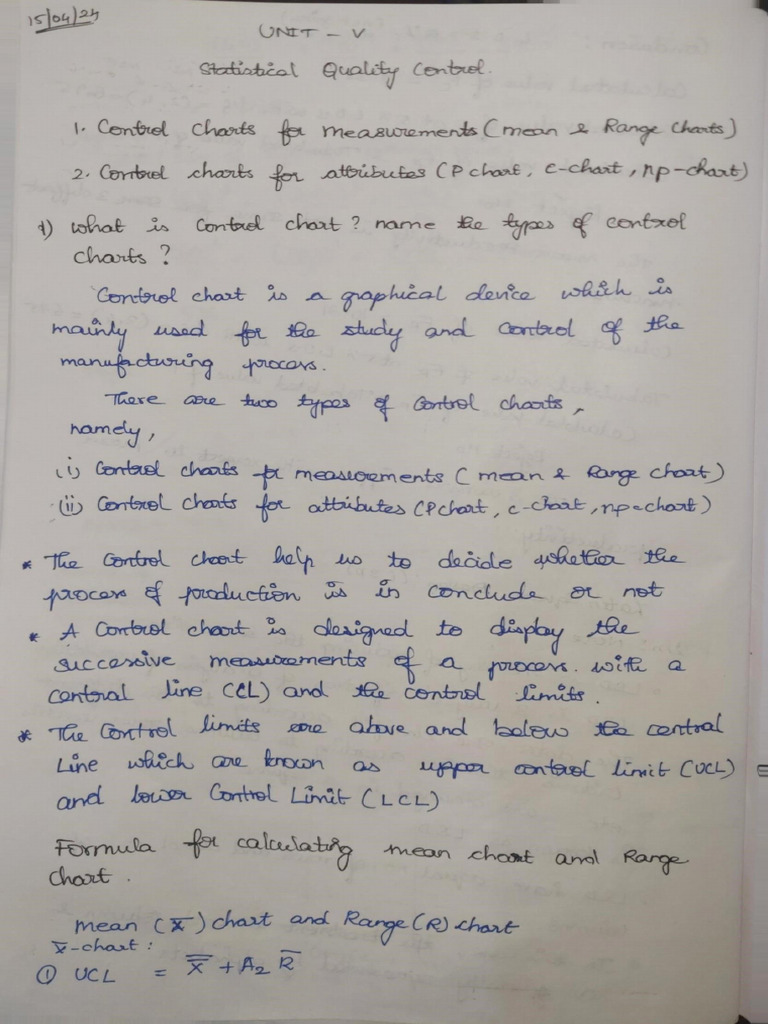 15/04/24
UNIT - V
Statistical Quality Control.
1. Control Charts for measurements (mean & Range Charts)
2. Control charts for attributes (P chart, c-chart, np-chart)
1) What is Control chart? name the types of control
charts?
Control chart is a graphical device which is
mainly used for the study and control of the
manufacturing process.
There are two types of Control charts,
namely,
(i) Control charts for measurements (mean & Range chart)
(ii) Control charts for attributes (P chart, c-chart, np-chart)
* The control chart help us to decide whether the
process of production is in conclude or not
* A Control chart is designed to display the
successive measurements of a process. with a
central line (CL) and the control limits.
* The Control limits are above and below the central
Line which are known as upper control limit (UCL)
and lower Control Limit (LCL)
Formula for calculating mean chart and Range
chart.
mean (x̅) chart and Range (R) chart
x̅-chart:
① UCL = x̿ + A₂ R̅